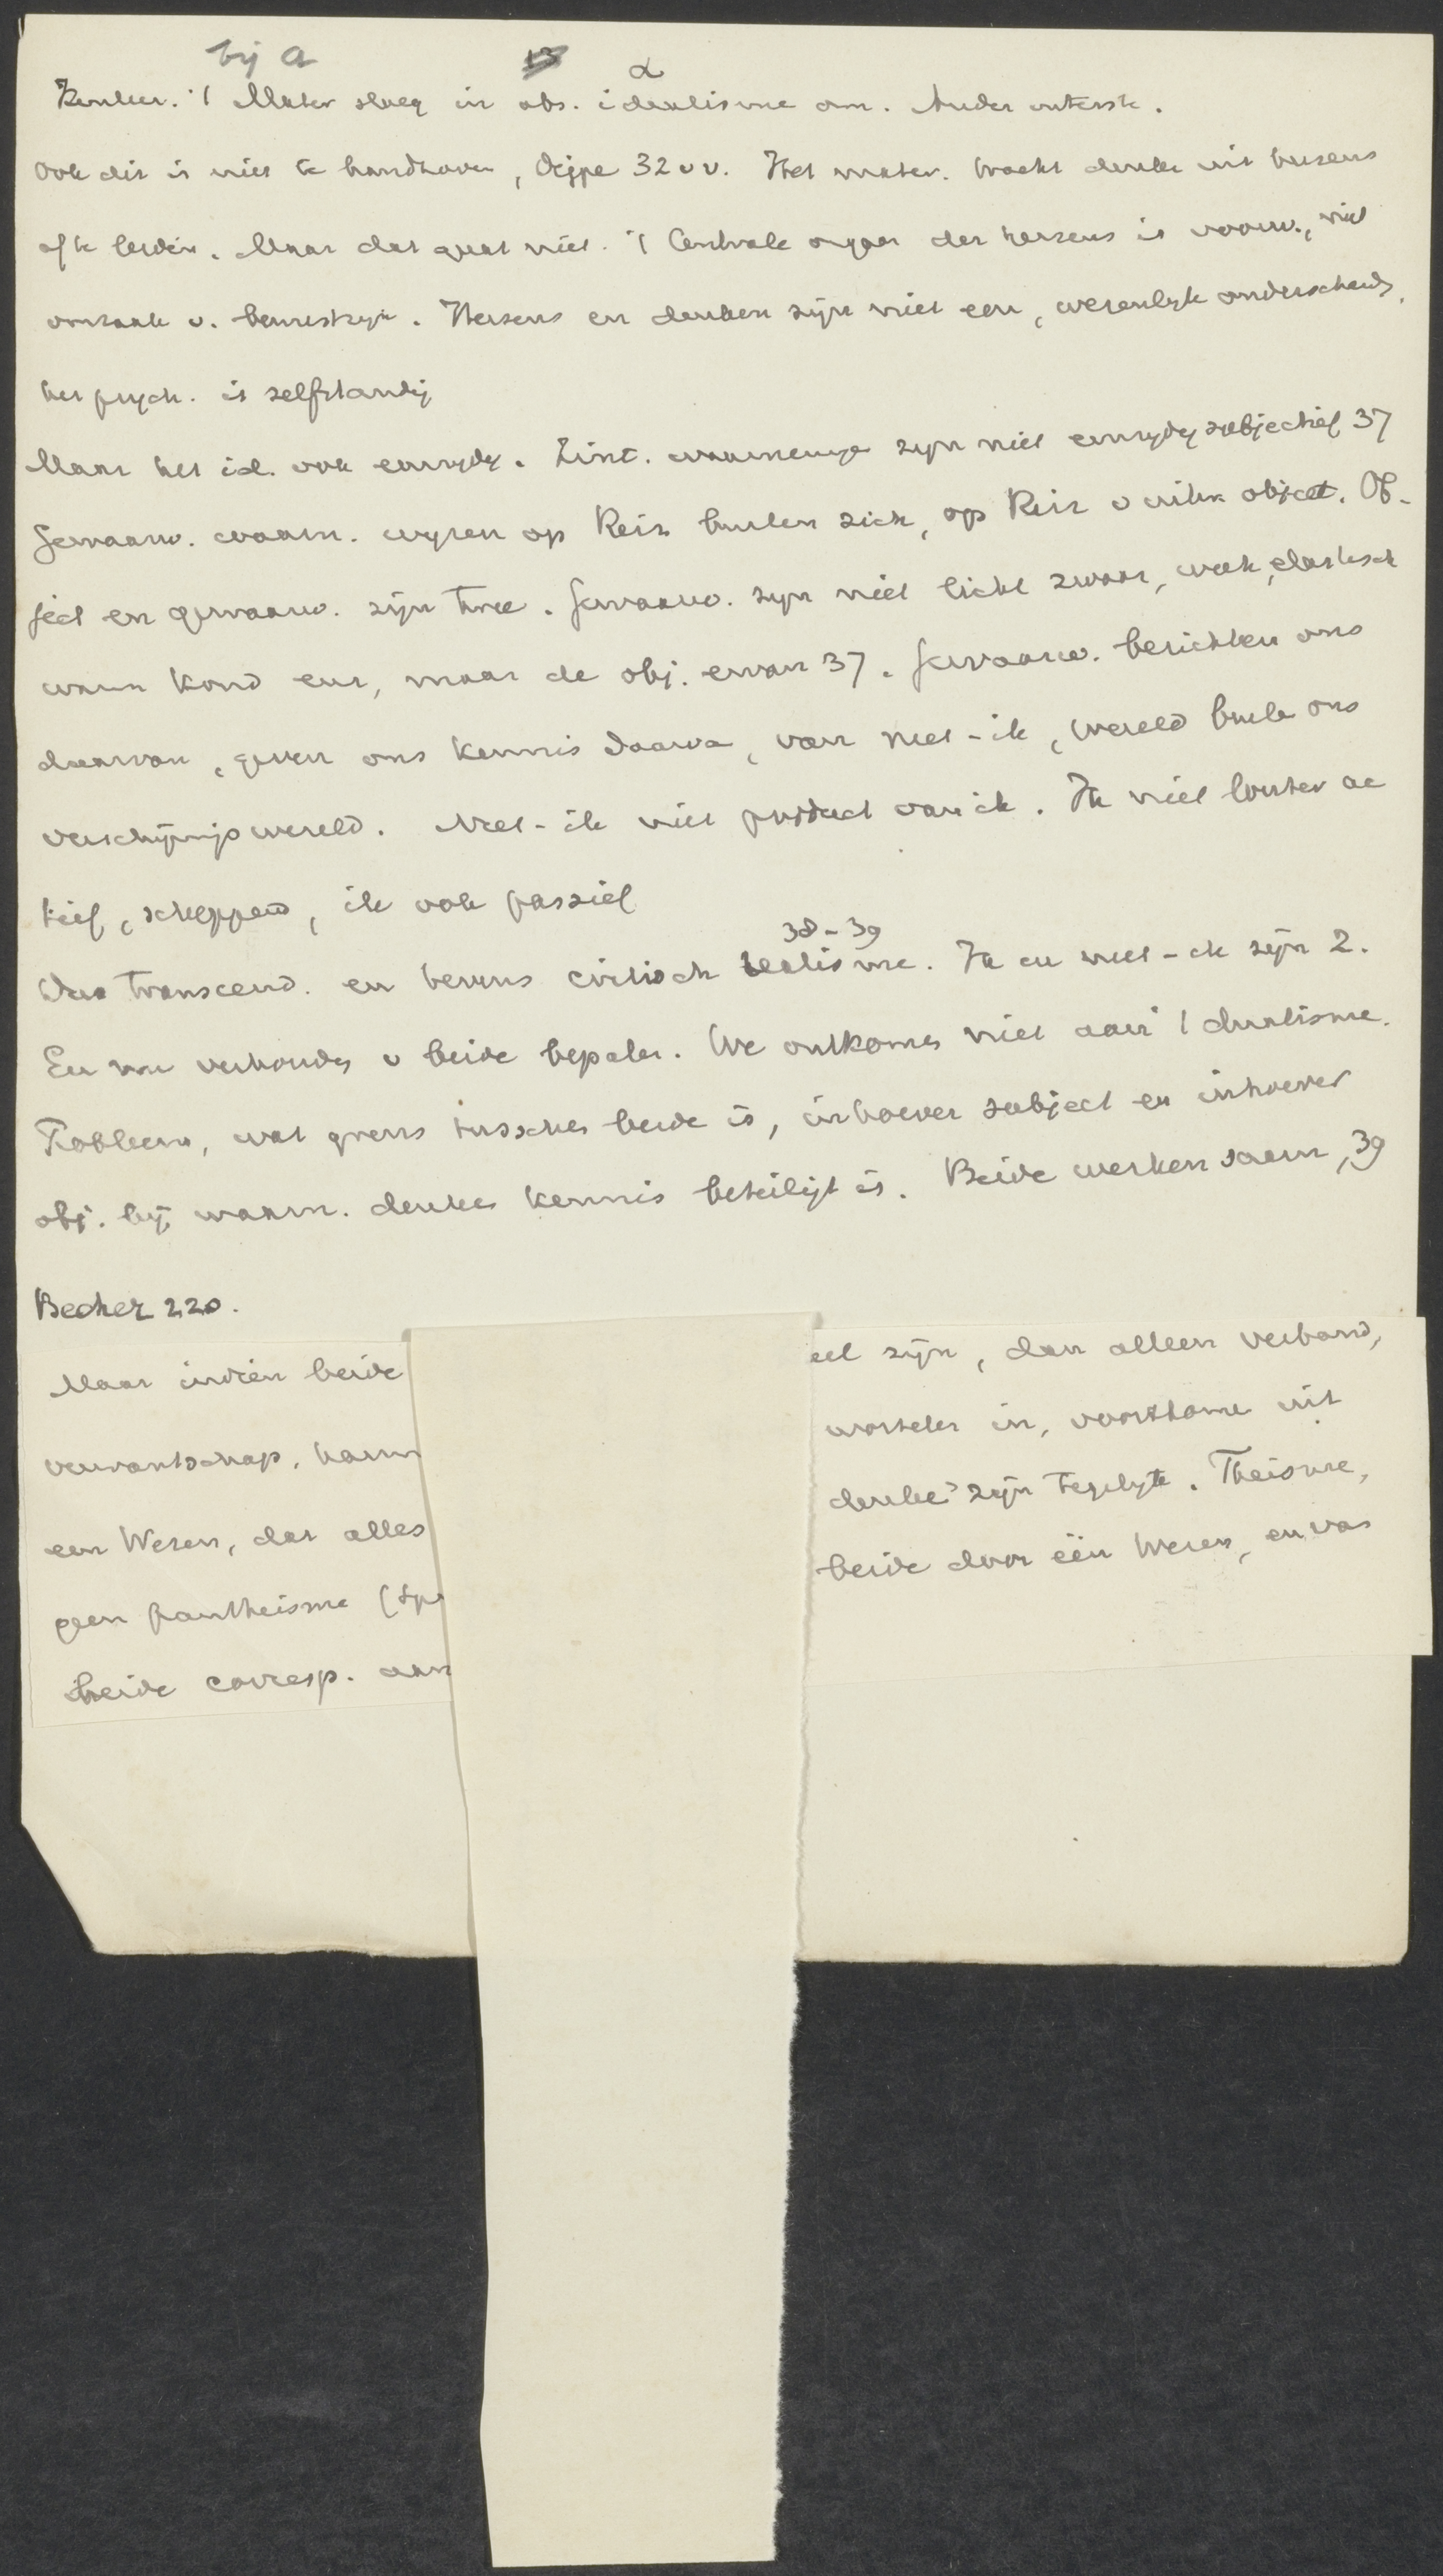 bij a
α
Kenleer. 't Mater sloeg in abs. idealisme om. Ander uiterste.
Ook dit is niet te handhaven, Dippe 32 vv. Het mater. tracht denke uit hersens
af te leiden. Maar dat gaat niet. 't Centrale orgaan der hersens is voorw., niet
oorzaak v. bewustzijn. Hersens en denken zijn niet een, wezenlijk onderscheide,
het psych. is zelfstandig
Maar het id. ook eenzijdig. Zint. waarneminge zijn niet eenzijdig subjectief 37
Gewaarw. waarn. wijzen op Reiz buiten zich, op Reiz v uitw object. Ob-
ject en gewaarw. zijn twee. Gewaarw. zijn niet licht zwaar, week, elastisch
warm koud enz, maar de obj. ervan 37. Gewaarw. berichten ons
daarvan, geven ons kennis daarva, van niet-ik, wereld buite ons
verschijnigswereld. Niet-ik niet product van ik. Ik niet louter ac
tief, scheppend, ik ook passief
38-39
Dus transcend. en tevens critisch realisme. Ik en niet-ik zijn 2.
En nu verhoudg v beide bepalen. We ontkomen niet aan 't dualisme.
Probleem, wat grens tusschen beide is, inhoever subject en inhoever
obj. bij waarn. denken kennis beteiligt is. Beide werken saam, 39
Becher 220.
Maar indien beide
eel zijn, dan alleen verband,
verwantschap, harm
wortelen in, voortkome uit
een Wezen, dat alles
denke' zijn tegelijk. Theisme,
geen pantheisme (Sp
beide door één Wezen, en van
beide corresp. aan